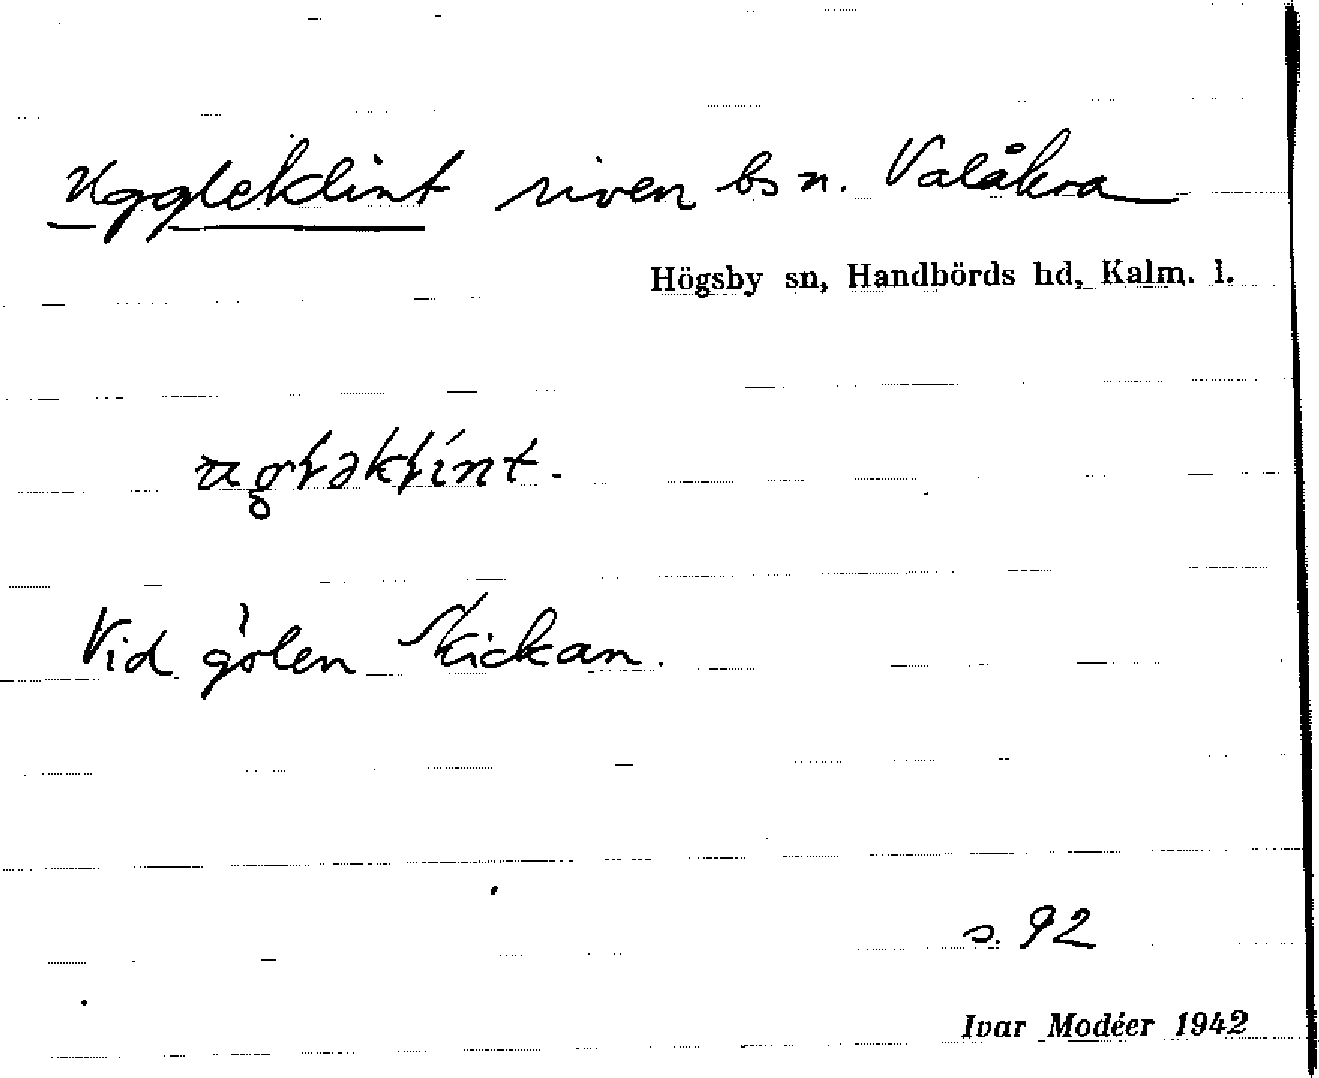 Uggleklint riven bs n. Valåkra
Högsby sn, Handbörds hd, Kalm. l.
Vid gölen Kickan.
s. 92
Ivar Modéer 1942